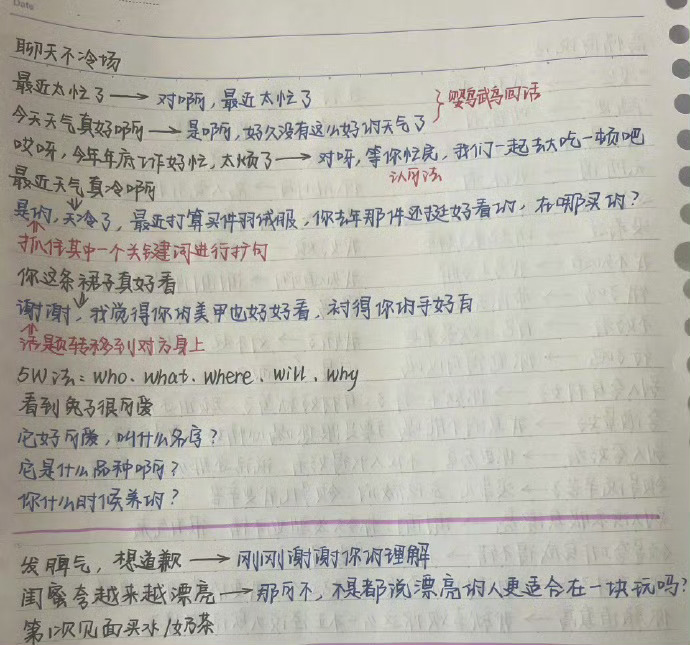 Date
聊天不冷场
最近太忙了→对啊,最近太忙了
今天天气真好啊→是啊,好久没有这么好的天气了 } 鹦鹉回话
哎呀,今年年底工作好忙,太烦了→对呀,等你忙完,我们一起去大吃一顿吧
认同法
最近天气真冷啊
是的,天冷了,最近打算买件羽绒服,你去年那件还挺好看的,在哪买的?
抓住其中一个关键词进行扩句
你这条裙子真好看
谢谢,我觉得你的美甲也好好看,衬得你的手好白
话题转移到对方身上
5W法:who、what、where、will、why
看到兔子很可爱
它好可爱,叫什么名字?
它是什么品种啊?
你什么时候养的?
发脾气,想道歉→刚刚谢谢你的理解
闺蜜夸越来越漂亮→那可不,不是都说漂亮的人更适合在一块玩吗?
第1次见面买水/奶茶